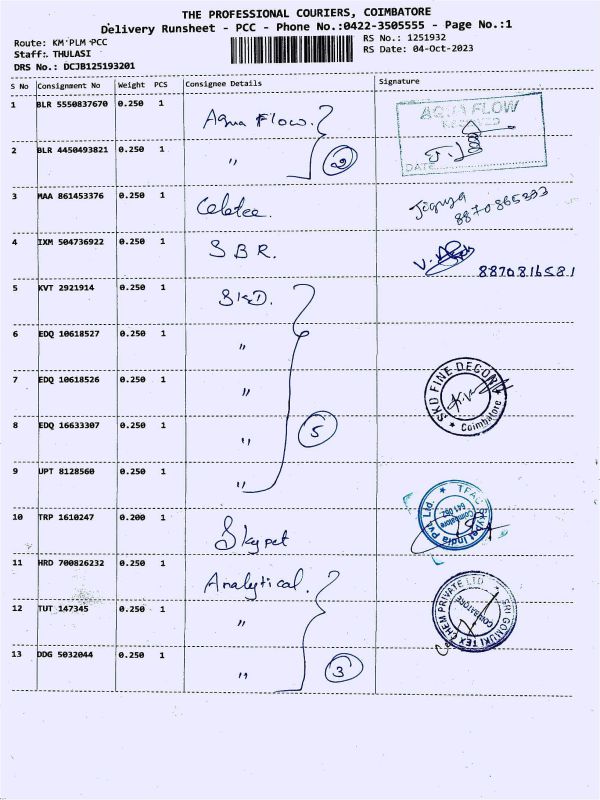 THE PROFESSIONAL COURIERS, COIMBATORE
Delivery Runsheet - PCC - Phone No.:0422-3505555 - Page No.:1
Route: KM PLM PCC
RS No.: 1251932
Staff: THULASI
RS Date: 04-Oct-2023
DRS No.: DCJB125193201
S No Consignment No Weight PCS Consignee Details Signature
1 BLR 5550837670 0.250 1 Aqua Flow. AQUA FLOW
2 BLR 4450493821 0.250 1 " 2 DATE
3 MAA 861453376 0.250 1 Celetee. 8870865333
4 IXM 504736922 0.250 1 SBR. 8870816581
5 KVT 2921914 0.250 1 SKD.
6 EDQ 10618527 0.250 1 "
7 EDQ 10618526 0.250 1 " SKD FINE DECOR Coimbatore
8 EDQ 16633307 0.250 1 " 5
9 UPT 8128560 0.250 1 "
10 TRP 1610247 0.200 1 Skypet Skypet India Pvt. Ltd. Coimbatore
11 HRD 700826232 0.250 1 Analytical.
12 TUT 147345 0.250 1 " SRI GOMUKI TEX CHEM PRIVATE LTD COIMBATORE
13 DDG 5032044 0.250 1 " 3